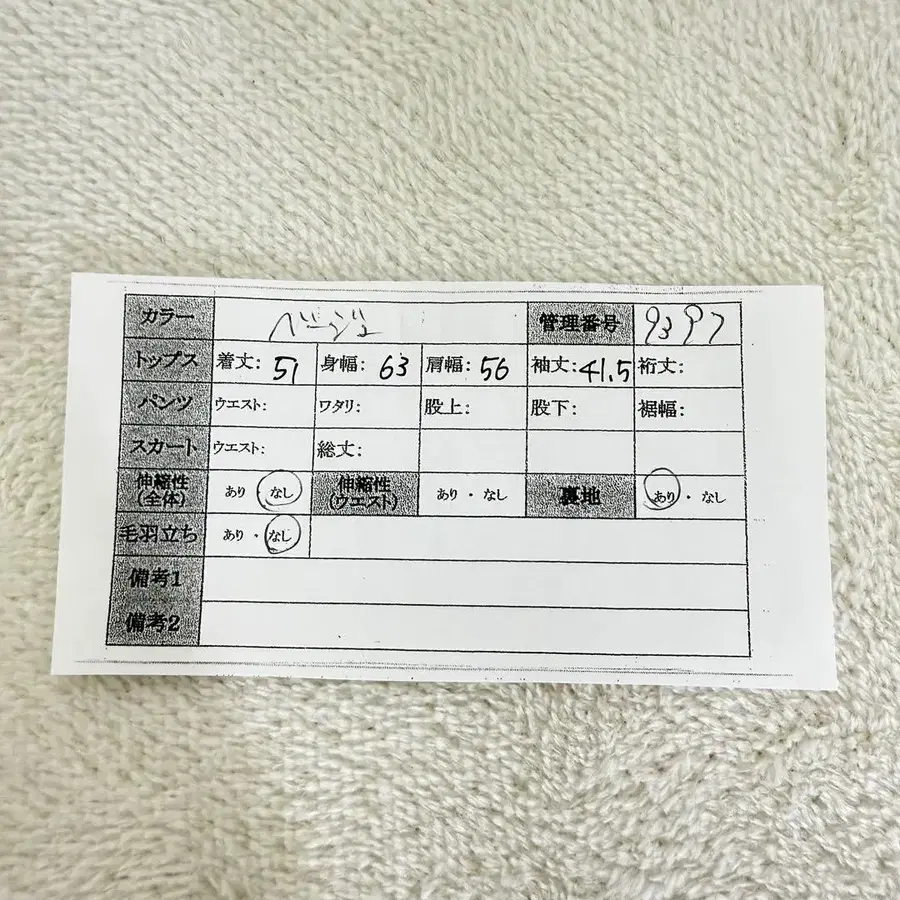 カラー ベージュ 管理番号 9397
トップス 着丈: 51 身幅: 63 肩幅: 56 袖丈: 41.5 裄丈:
パンツ ウエスト: ワタリ: 股上: 股下: 裾幅:
スカート ウエスト: 総丈:
伸縮性(全体) あり・なし 伸縮性(ウエスト) あり・なし 裏地 あり・なし
毛羽立ち あり・なし
備考1
備考2